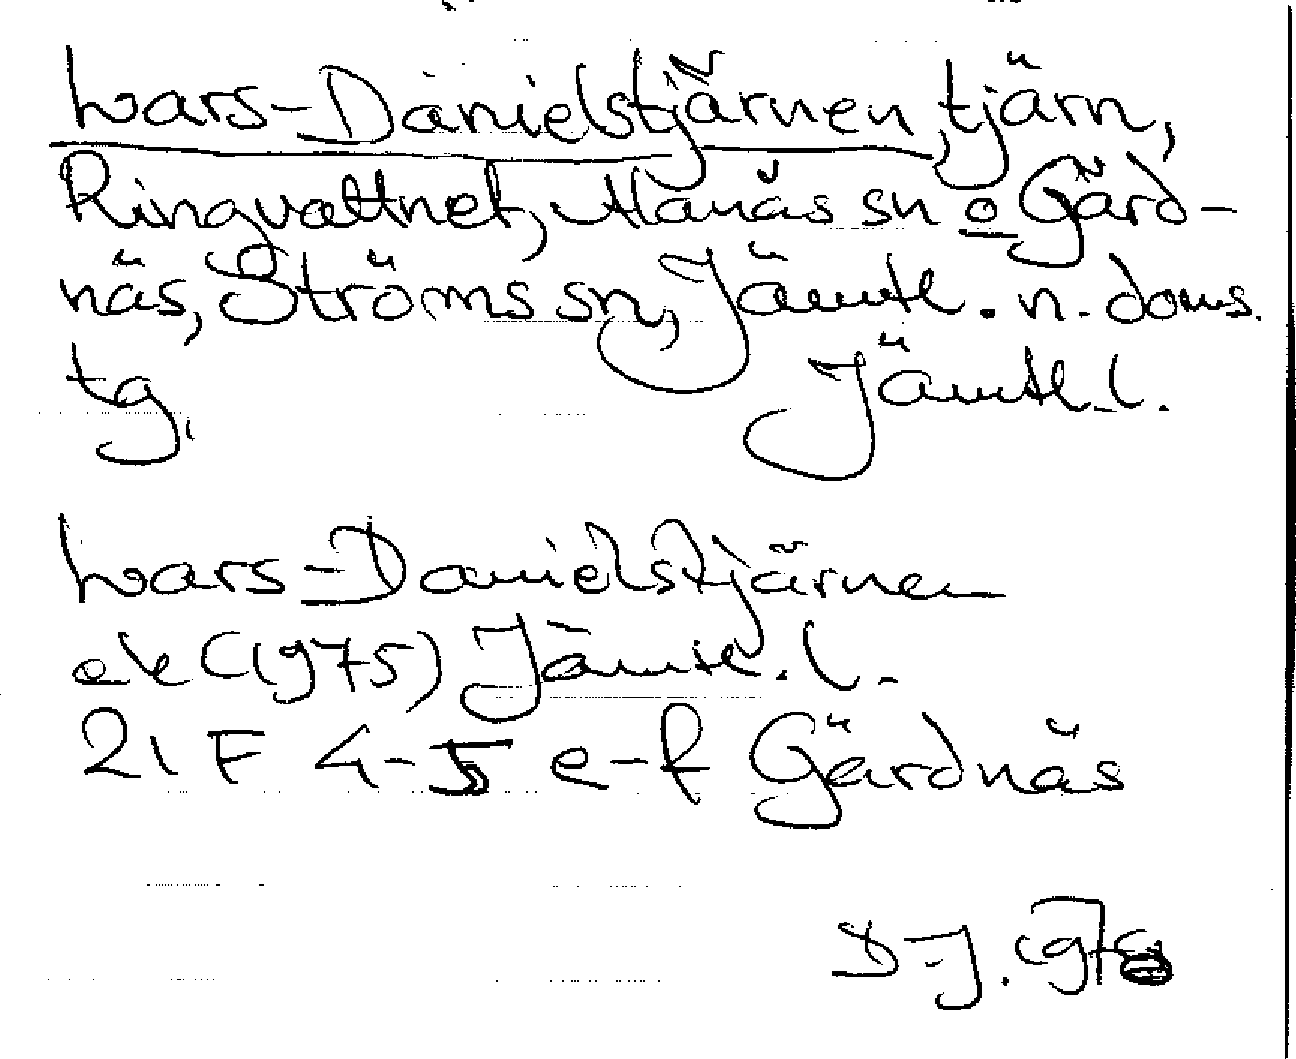 Lars-Danielstjärnen, tjärn,
Ringvattnet, Alanäs sn o Gärd-
näs, Ströms sn, Jämtl. n. doms.
tg, Jämtl. l.
Lars-Danielstjärnen
ek (1975) Jämtl. l.
21 F 4-5 e-f Gärdnäs
D-J.